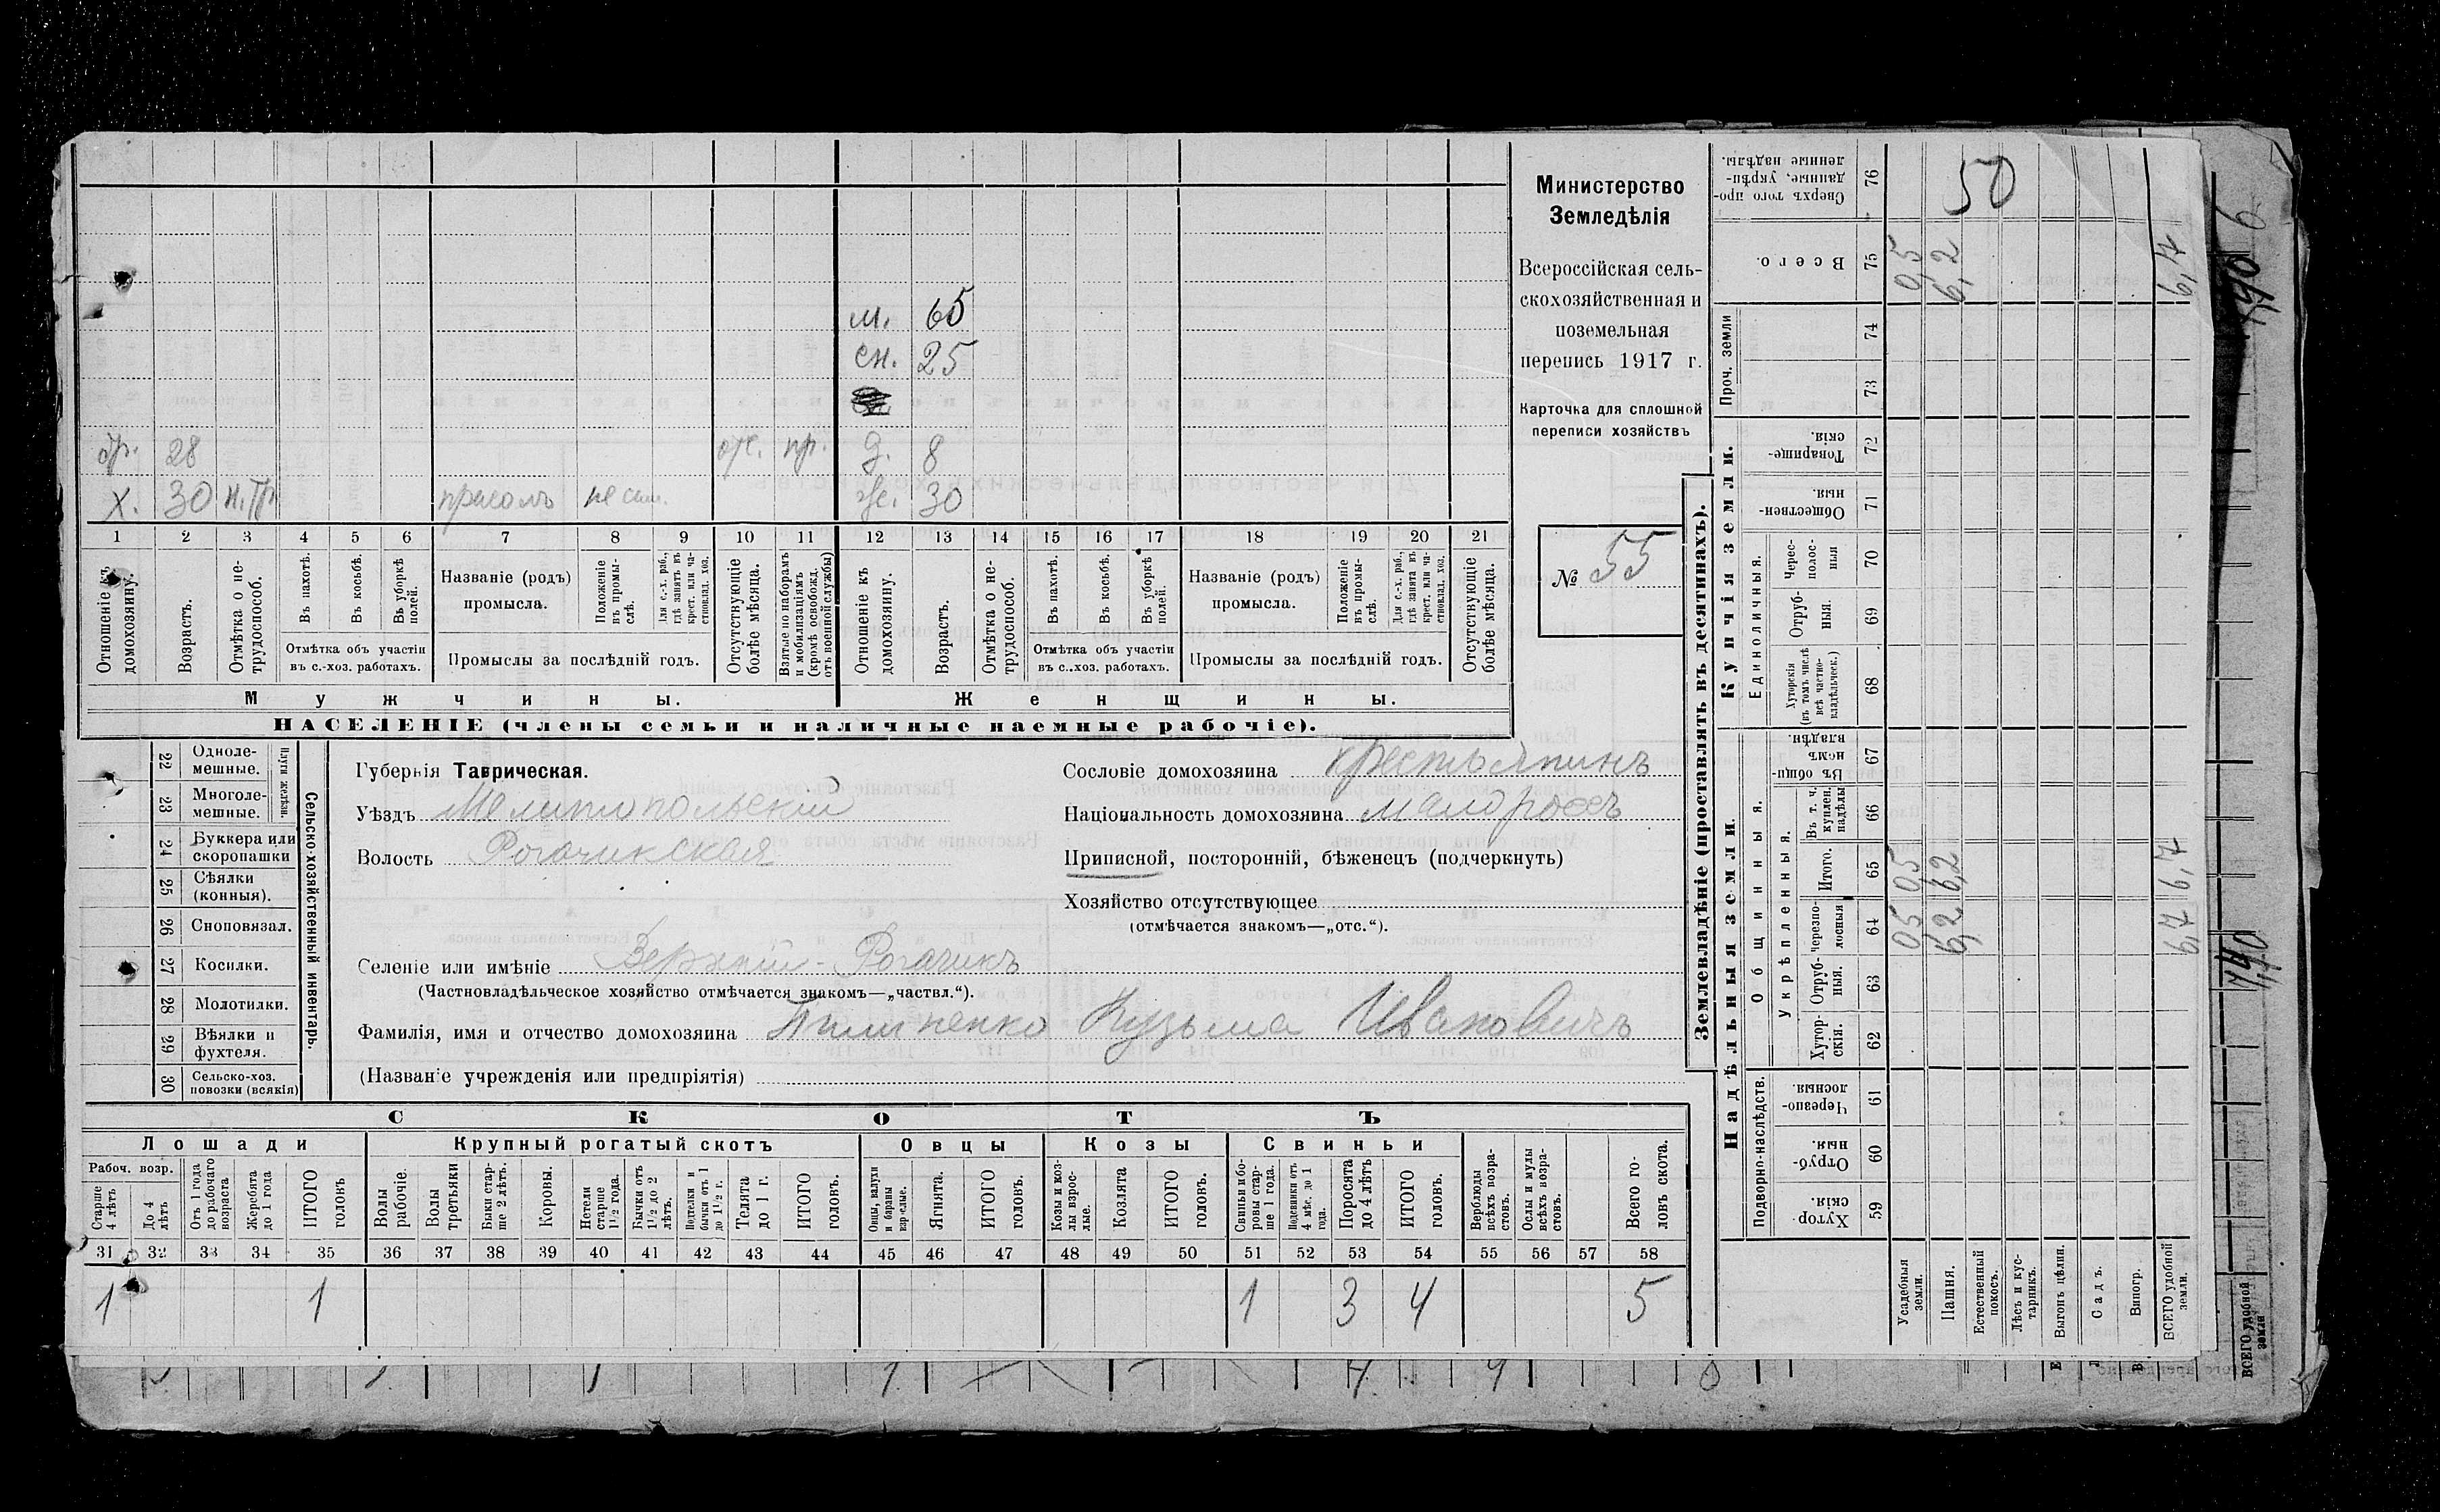 Министерство
Земледѣлія
Всероссійская сель-
скохозяйственная и
поземельная
перепись 1917 г.
Карточка для сплошной
переписи хозяйствъ
№ 55
м. 65
сн. 25
бр. 28 отс. пр. д. 8
х. 30 н.тр. прасолъ ж. 30
1 2 3 4 5 6 7 8 9 10 11 12 13 14 15 16 17 18 19 20 21
Отношеніе къ домохозяину.
Возрастъ.
Отмѣтка о не-трудоспособ.
Въ пахотѣ.
Въ косьбѣ.
Въ уборкѣ полей.
Отмѣтка объ участіи
въ с.-хоз. работахъ.
Названіе (родъ)
промысла.
Положеніе въ промы-слѣ.
Для с.-х. раб., гдѣ занятъ въ крест. или ча-стновлад. хоз.
Промыслы за послѣдній годъ.
Отсутствующіе болѣе мѣсяца.
Взятые по наборамъ и мобилизаціямъ (кромѣ освобожд. отъ военной службы)
Отношеніе къ домохозяину.
Возрастъ.
Отмѣтка о не-трудоспособ.
Въ пахотѣ.
Въ косьбѣ.
Въ уборкѣ полей.
Отмѣтка объ участіи
въ с.-хоз. работахъ.
Названіе (родъ)
промысла.
Положеніе въ промы-слѣ.
Для с.-х. раб., гдѣ занята въ крест. или ча-стновлад. хоз.
Промыслы за послѣдній годъ.
Отсутствующіе болѣе мѣсяца.
Мужчины. Женщины.
НАСЕЛЕНІЕ (члены семьи и наличные наемные рабочіе).
Сельско-хозяйственный инвентарь.
Плуги желѣзн.
22 Одноле-мешные.
23 Многоле-мешные.
24 Буккера или скоропашки
25 Сѣялки (конныя).
26 Сноповязал.
27 Косилки.
28 Молотилки.
29 Вѣялки и фухтеля.
30 Сельско-хоз. повозки (всякія)
Губернія Таврическая.
Уѣздъ Мелитопольскій
Волость Рогачикская
Сословіе домохозяина крестьянинъ
Національность домохозяина малороссъ
Приписной, посторонній, бѣженецъ (подчеркнуть)
Хозяйство отсутствующее
(отмѣчается знакомъ—„отс.“).
Селеніе или имѣніе Верхній-Рогачикъ
(Частновладѣльческое хозяйство отмѣчается знакомъ—„частвл.“).
Фамилія, имя и отчество домохозяина Пилипенко Кузьма Ивановичъ
(Названіе учрежденія или предпріятія)
СКОТЪ
Лошади Крупный рогатый скотъ Овцы Козы Свиньи
Рабоч. возр.
Старше 4 лѣтъ
До 4 лѣтъ
Отъ 1 года до рабочаго возраста
Жеребята до 1 года
ИТОГО головъ
Волы рабочіе.
Волы третьяки
Быки стар-ше 2 лѣтъ.
Коровы.
Нетели старше 1½ года.
Бычки отъ 1½ до 2 лѣтъ.
Подтелки и бычки отъ 1 до 1½ г.
Телята до 1 г.
ИТОГО головъ.
Овцы, валухи и бараны взрослые.
Ягнята.
ИТОГО головъ.
Козы и коз-лы взрос-лые.
Козлята
ИТОГО головъ.
Свиньи и бо-ровы стар-ше 1 года.
Подсвинки отъ 4 мѣс. до 1 года.
Поросята до 4 лѣтъ
ИТОГО головъ.
Верблюды всѣхъ возра-стовъ.
Ослы и мулы всѣхъ возра-стовъ.
Всего го-ловъ скота.
31 32 33 34 35 36 37 38 39 40 41 42 43 44 45 46 47 48 49 50 51 52 53 54 55 56 57 58
1 1 1 3 4 5
Землевладѣніе (проставлять въ десятинахъ).
Купчія земли.
Надѣльныя земли.
Сверхъ того про-данные, укрѣп-ленные надѣлы. 76 50
Всего. 75 0,5 6,2 6,7
Проч. земли 74 73
Товарище-скія. 72
Обществен-ныя. 71
Единоличныя.
Черес-полос-ныя 70
Отруб-ныя. 69
Хуторскія (въ томъ числѣ всѣ частно-владѣльческ.) 68
Общинныя.
Въ общи-номъ владѣн. 67
Укрѣпленныя.
Въ т. ч. куплен. надѣлы 66
Итого. 65 0,5 6,2 6,7
черезпо-лосныя 64 0,5 6,2 6,7
Отруб-ныя. 63
Хутор-скія. 62
Подворно-наслѣдств.
Черезпо-лосныя. 61
Отруб-ныя. 60
Хутор-скія. 59
Усадебныя земли.
Пашня.
Естественный покосъ.
Лѣсъ и кус-тарникъ.
Выгонъ цѣлин.
Садъ.
Виногр.
ВСЕГО удобной земли.
ВСЕГО удобной земли